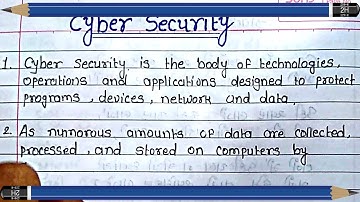 Cyber Security
1. Cyber security is the body of technologies,
operations and applications designed to protect
programs, devices, network and data.
2. As numorous amounts of data are collected,
processed, and stored on computers by